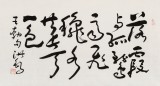 落霞
与孤鹜
齐飞
秋水
共长天
一色
王勃句